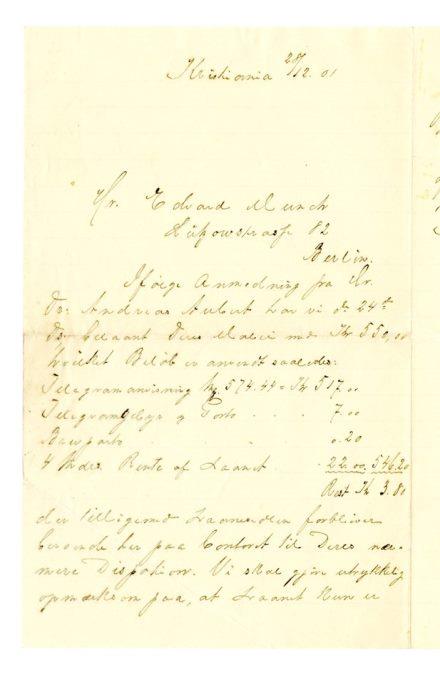 Kristiania 28/12. 01
Hr. Edvard Munch
Lützowstrasse 82
Berlin.
Ifølge Anmodning fra Hr.
Dr. Andreas Aubert har vi d. 24de
ds. belaant Deres Malerier med Kr 550,00
hvilket Beløb er anvendt saaledes:
Telegramanvisning 574.44 = Kr 517.00
Telegramgebyr og Porto . . . 7.00
Bauporto . . 0.20
4 Mdrs Rente af Laanet . 22.00. 546.20
Rest Kr 3.80
der tilligemed Laanesedlen forbliver
beroende her paa Contoret til Deres nær-
mere Disposition. Vi skal gjøre udtrykkelig
opmærksom paa, at Laanet kun er